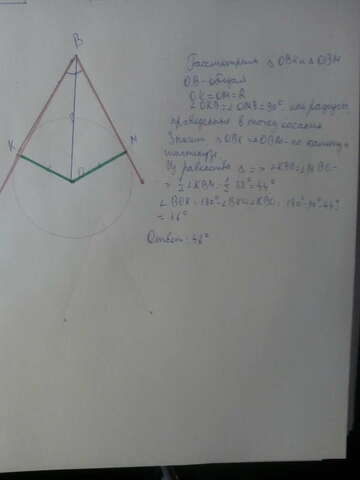 B
K
M
O
Рассмотрим △ OBK и △ OBM
OB - общая
OK = OM = R
∠OKB = ∠OMB = 90°, как радиусы
проведенные в точку касания
Значит △ OBK = △ OBM - по катету и
гипотенузе
Из равенства △ => ∠KBO = ∠MBO =
= 1/2 ∠KBM = 1/2 · 88° = 44°
∠BOK = 180° - ∠BKO - ∠KBO = 180° - 90° - 44° =
= 46°
Ответ: 46°